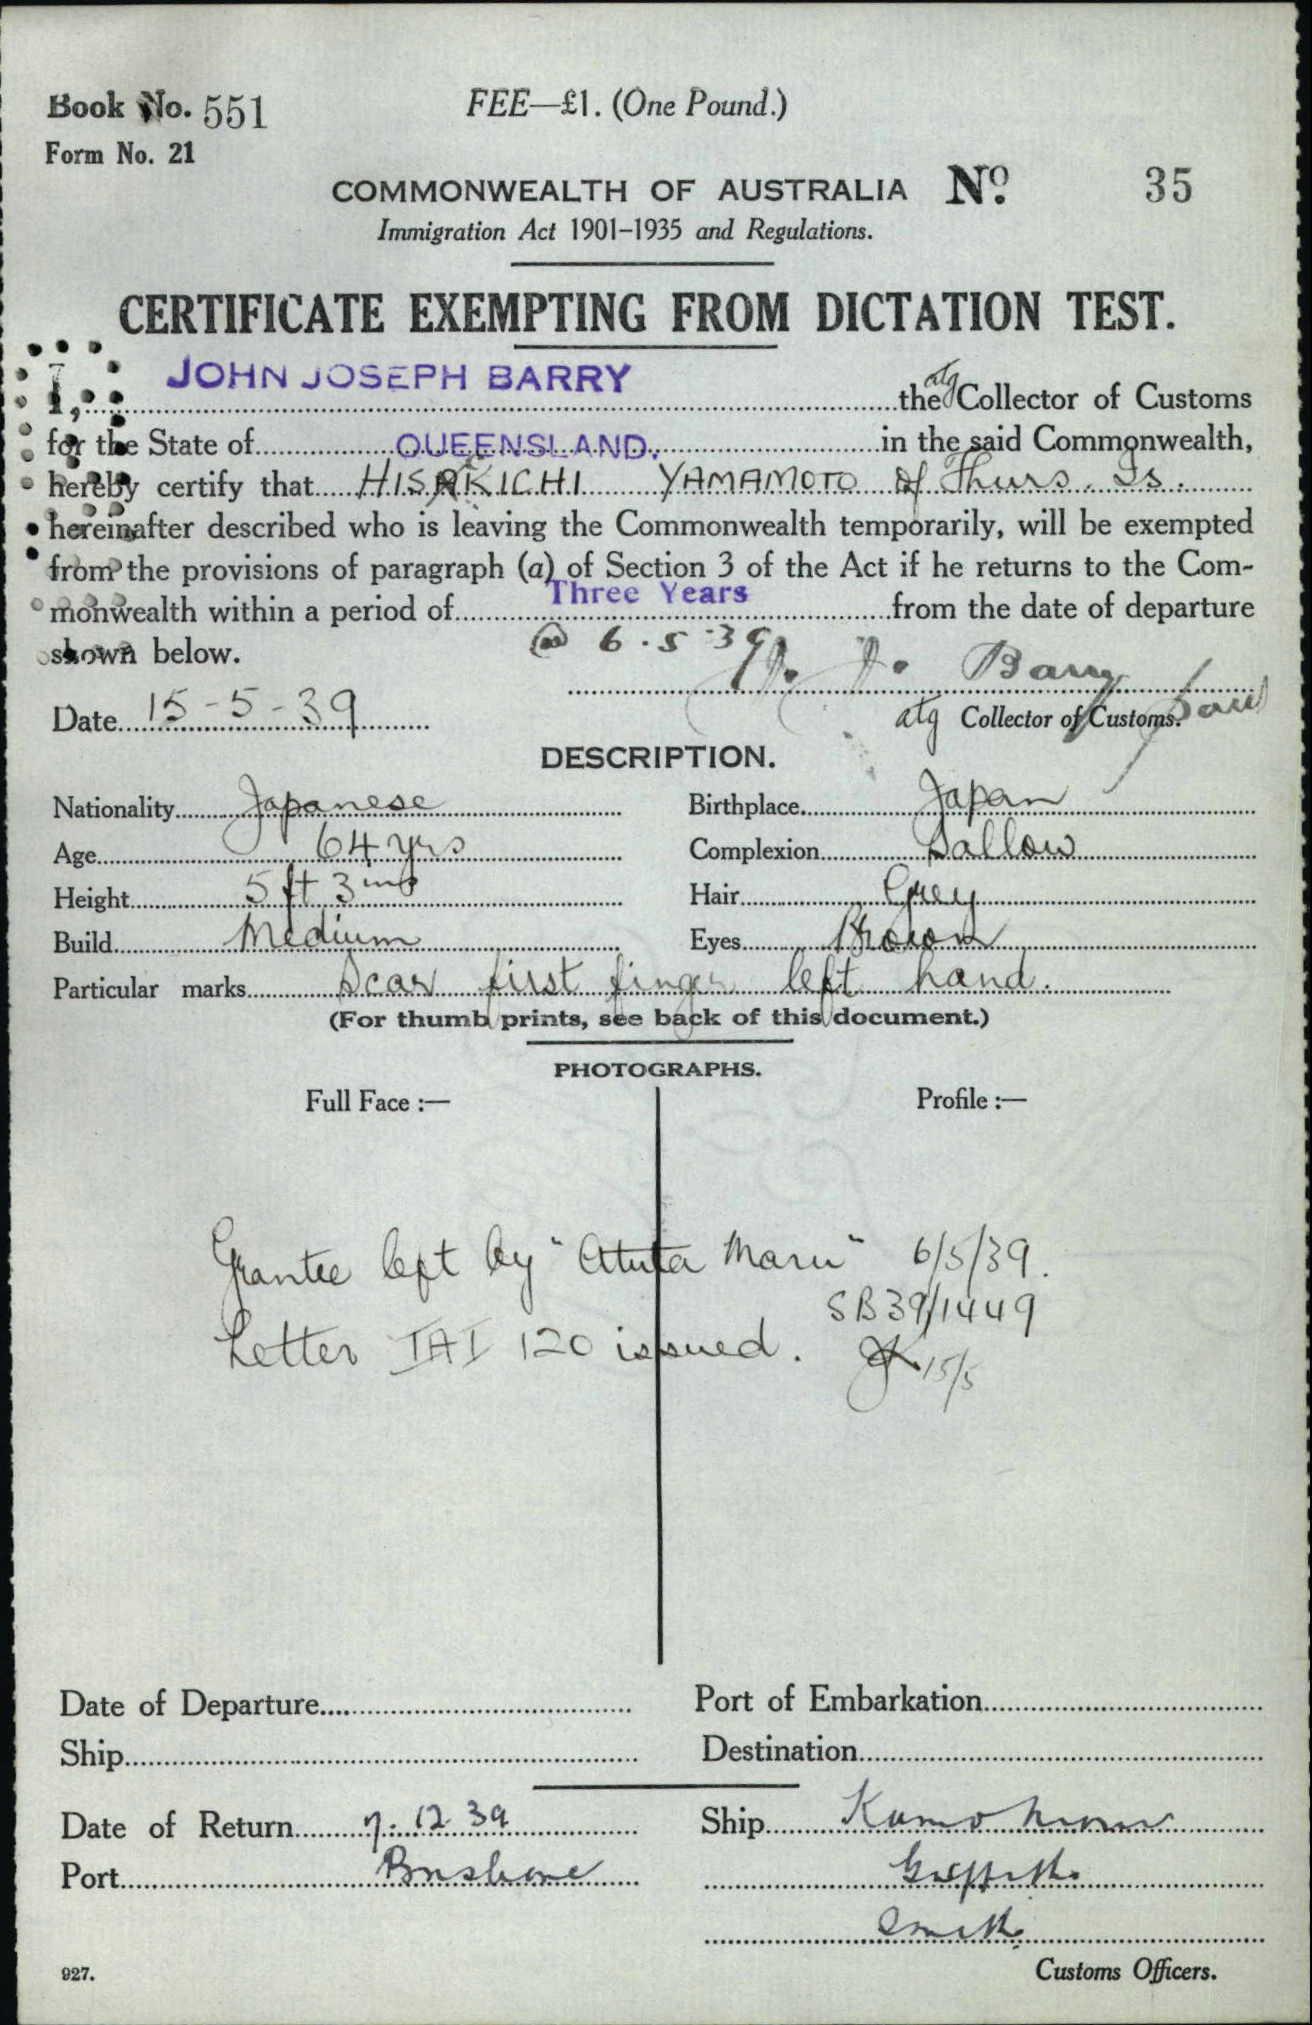 Book No. 551
FEE—£1. (One Pound.)
Form No. 21
COMMONWEALTH OF AUSTRALIA No. 35
Immigration Act 1901–1935 and Regulations.
CERTIFICATE EXEMPTING FROM DICTATION TEST.
I, JOHN JOSEPH BARRY the atg Collector of Customs
for the State of QUEENSLAND. in the said Commonwealth,
hereby certify that HISAKICHI YAMAMOTO of Thurs. Is.
hereinafter described who is leaving the Commonwealth temporarily, will be exempted
from the provisions of paragraph (a) of Section 3 of the Act if he returns to the Com-
monwealth within a period of Three Years from the date of departure
shown below. 6.5.39
J. J. Barry
Date 15-5-39
atg Collector of Customs.
DESCRIPTION.
Nationality Japanese Birthplace Japan
Age 64 yrs Complexion Sallow
Height 5 ft 3 ins Hair Grey
Build Medium Eyes Brown
Particular marks Scar first finger left hand.
(For thumb prints, see back of this document.)
PHOTOGRAPHS.
Full Face :— Profile :—
Grantee left by "Atuta Maru" 6/5/39.
SB39/1449
Letter IAI 120 issued. 15/5
Date of Departure Port of Embarkation
Ship Destination
Date of Return 7.12 39 Ship Kamo Maru
Port Brisbane Griffiths
Smith
927. Customs Officers.